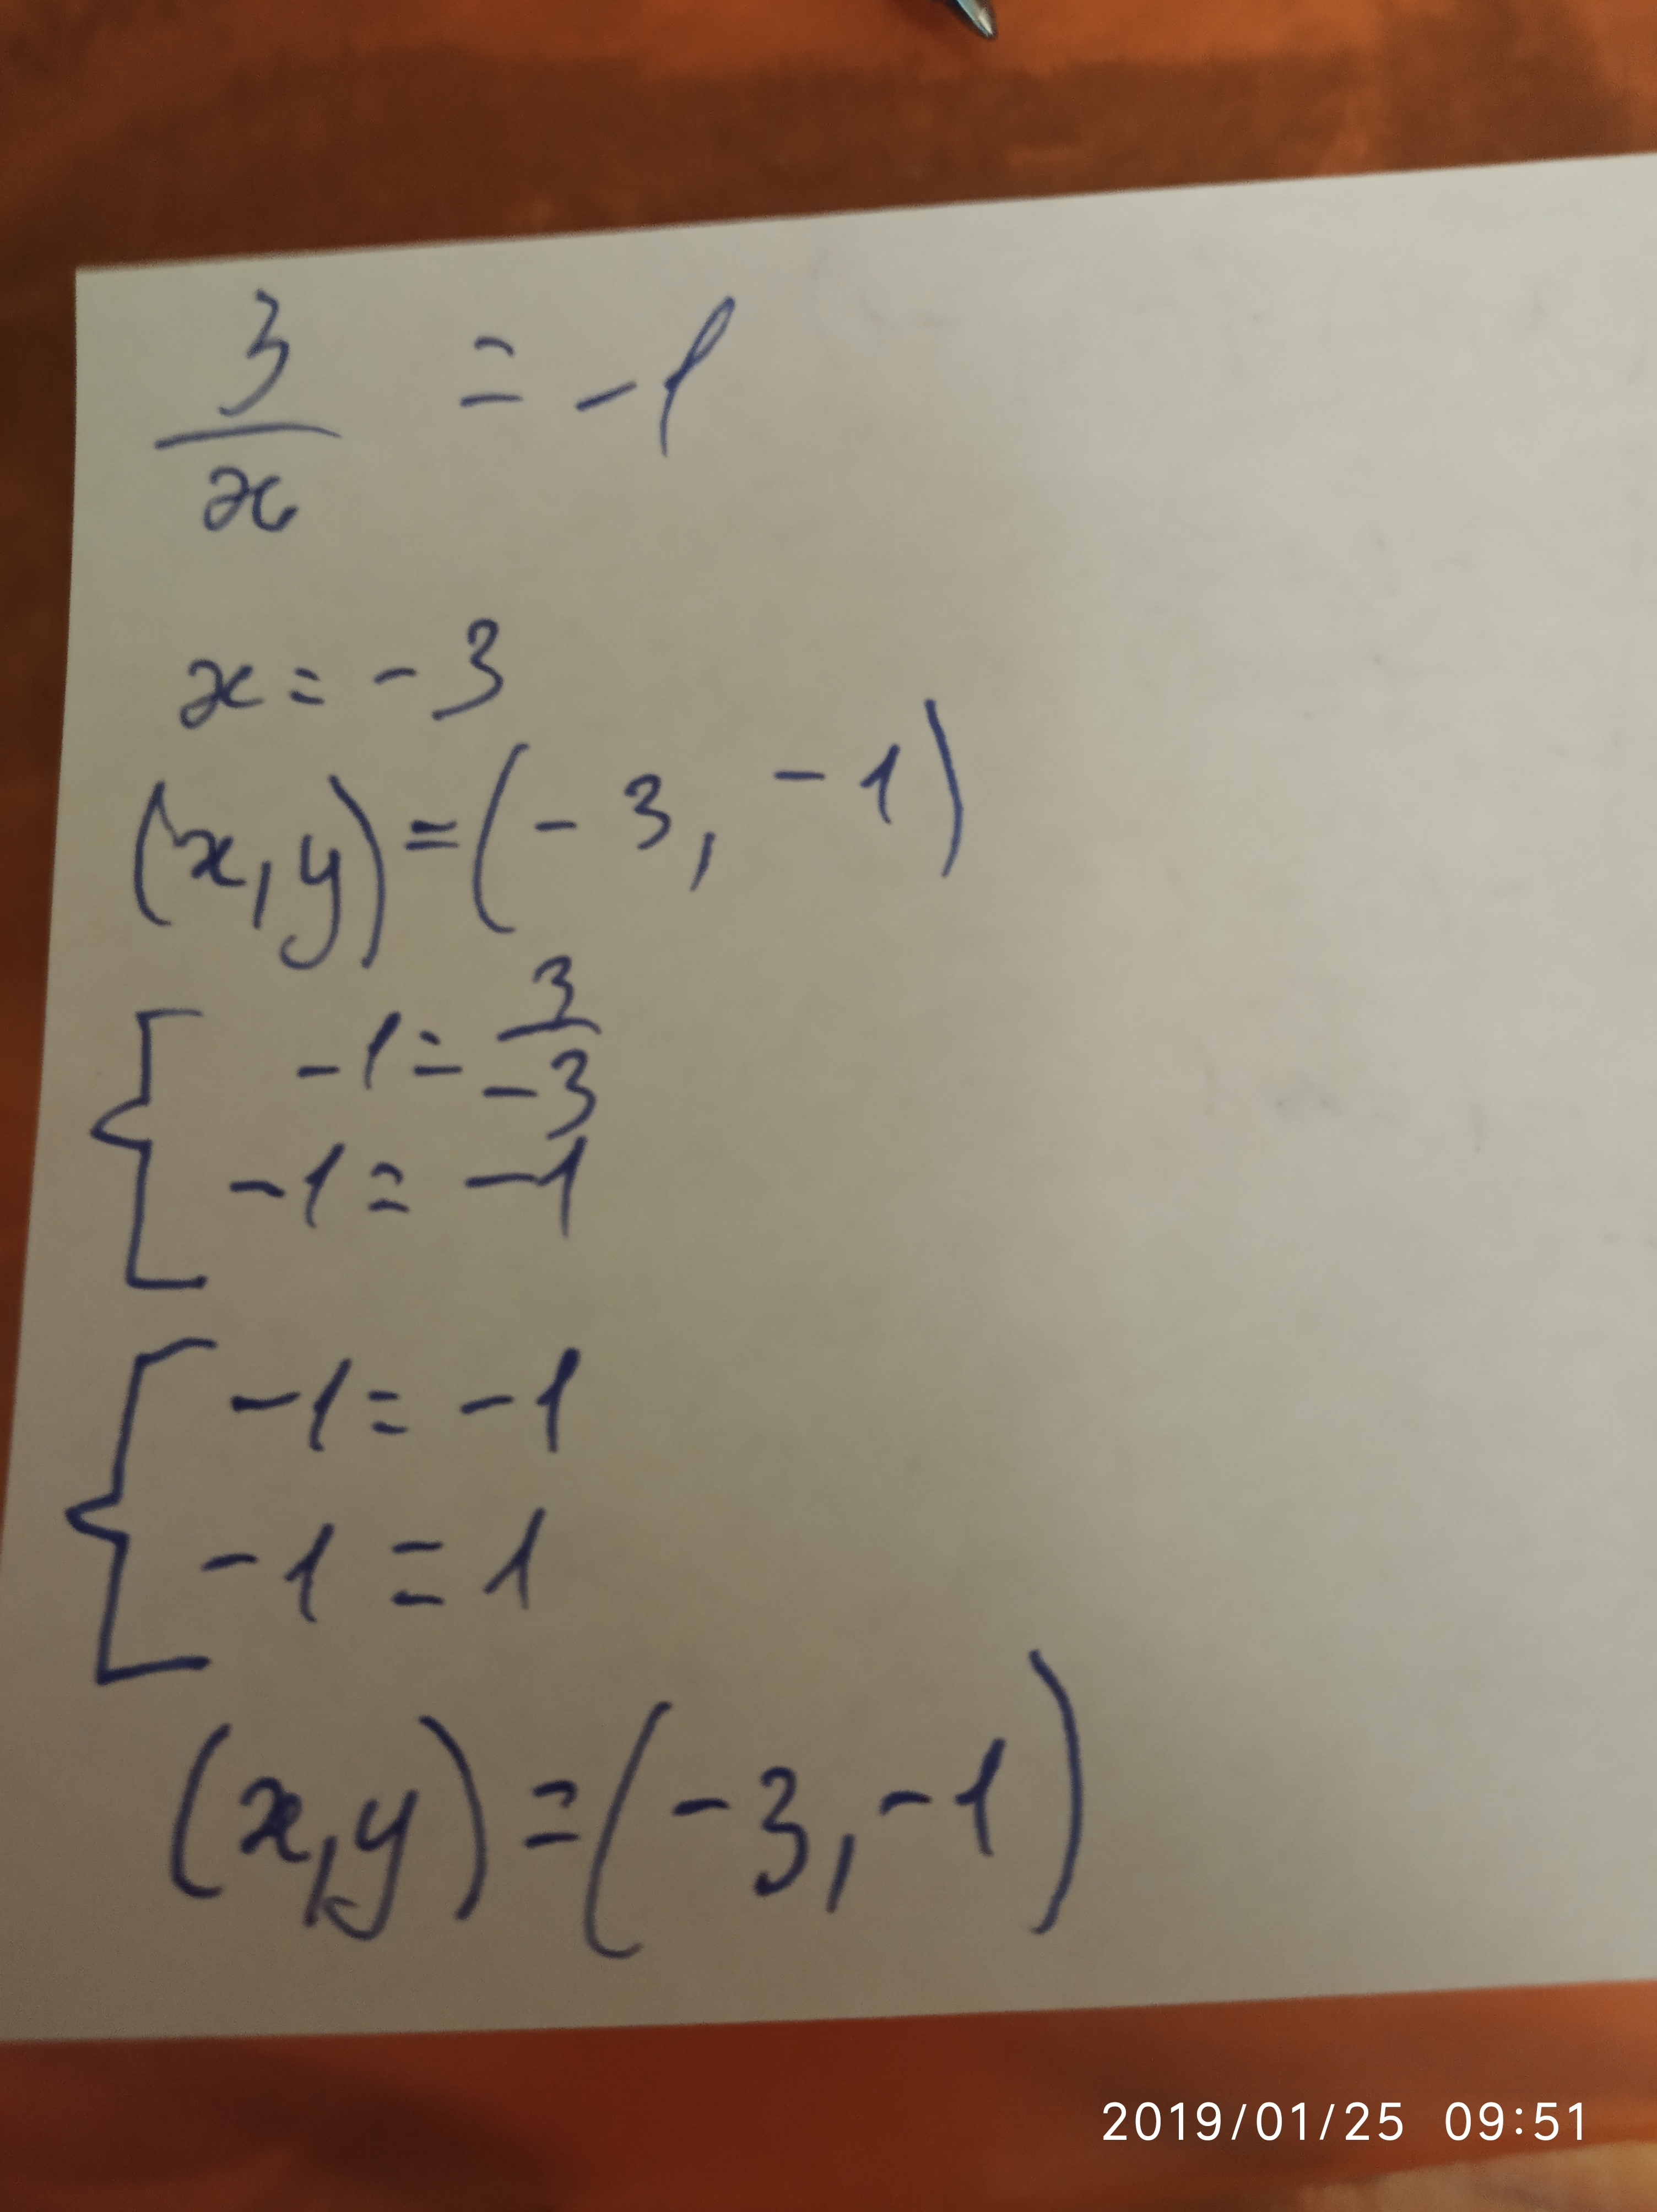 3/x = -1
x = -3
(x, y) = (-3, -1)
{ -1 = 3/-3
-1 = -1
{ -1 = -1
-1 = 1
(x, y) = (-3, -1)
2019/01/25 09:51